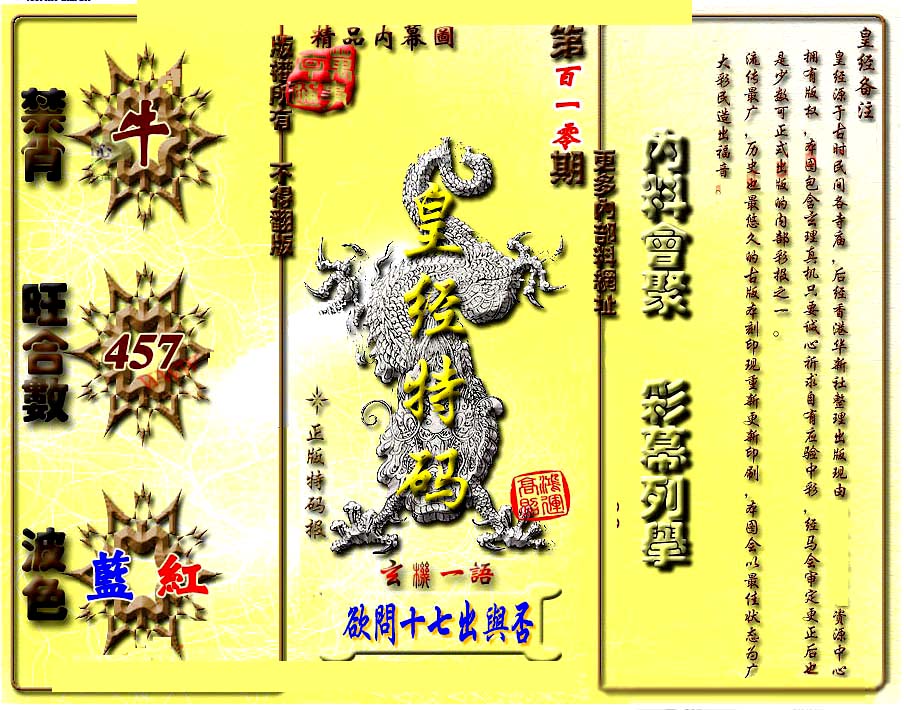 皇经备注
皇经源于古时民间各寺庙，后经香港华新社整理出版现由 资源中心
拥有版权，本图包含玄理真机只要诚心祈求自有应验中彩，经马会审定更正后也
是少数可正式出版的内部彩报之一。
流传最广，历史也最悠久的古版本刻印现重新更新印刷，本图会以最佳状态为广
大彩民造出福音
内料會聚 彩幕列舉
更多内部料網址
第百一零期
精品内幕圖
版權所有 不得翻版
皇经特码
正版特码报
鴻運
高照
玄機一語
欲問十七出與否
禁肖
牛
旺合數
457
波色
藍 紅